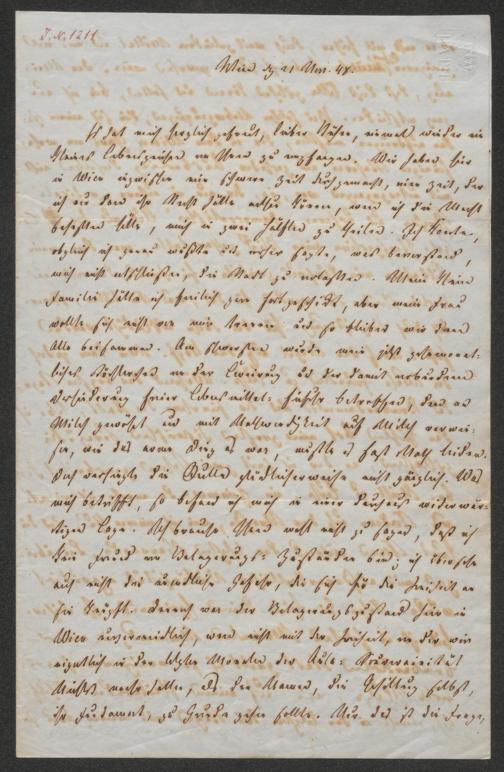 J. N. 1211
Wien dg 21 Nov. 48.
Es hat mich herzlich gefreut, lieber Kühne, einmal wieder ein
kleines Lebenszeichen von Ihnen zu empfangen. Wir haben hier
in Wien inzwischen eine schwere Zeit durchgemacht, eine Zeit, der
ich nur dann ihr Recht hätte anthun können, wenn ich die Macht
besessen hätte, mich in zwei Hälften zu theilen. Ich konnte,
obgleich ich genau wußte und vorher sagte, was bevorstand,
mich nicht entschließen, die Stadt zu verlassen. Meine kleine
Familie hätte ich freilich gern fortgeschickt, aber meine Frau
wollte sich nicht von mir trennen und so blieben wir denn
Alle beisammen. Am schwersten wurde mein jetzt
liches Töchterchen von der Cernirung und der damit verbundenen
Verhinderung freier Lebensmittel-Zufuhr betroffen, denn an
Milch gewöhnt und mit Nothwendigkeit auf Milch verwie-
sen, wie das arme Ding es war, mußte es fast Noth leiden.
Doch versiegte die Quelle glücklicherweise nicht gänzlich. Was
mich betrifft, so befand ich mich in einer durchaus widerwär-
tigen Lage. Ich brauche Ihnen wohl nicht zu sagen, daß ich
kein Freund von Belagerungs-Zuständen bin; ich übersehe
auch nicht die unendliche Gefahr, die sich für die Freiheit an
sie knüpft. Dennoch war der Belagerungszustand hier in
Wien unvermeidlich, wenn nicht mit der Freiheit, von der wir
eigentlich in den letzten Monaten der Aula-Souverainität
Nichts mehr hatten, als den Namen, die Gesittung selbst,
ihr Fundament, zu Grunde gehen sollte. Nur das ist die Frage,